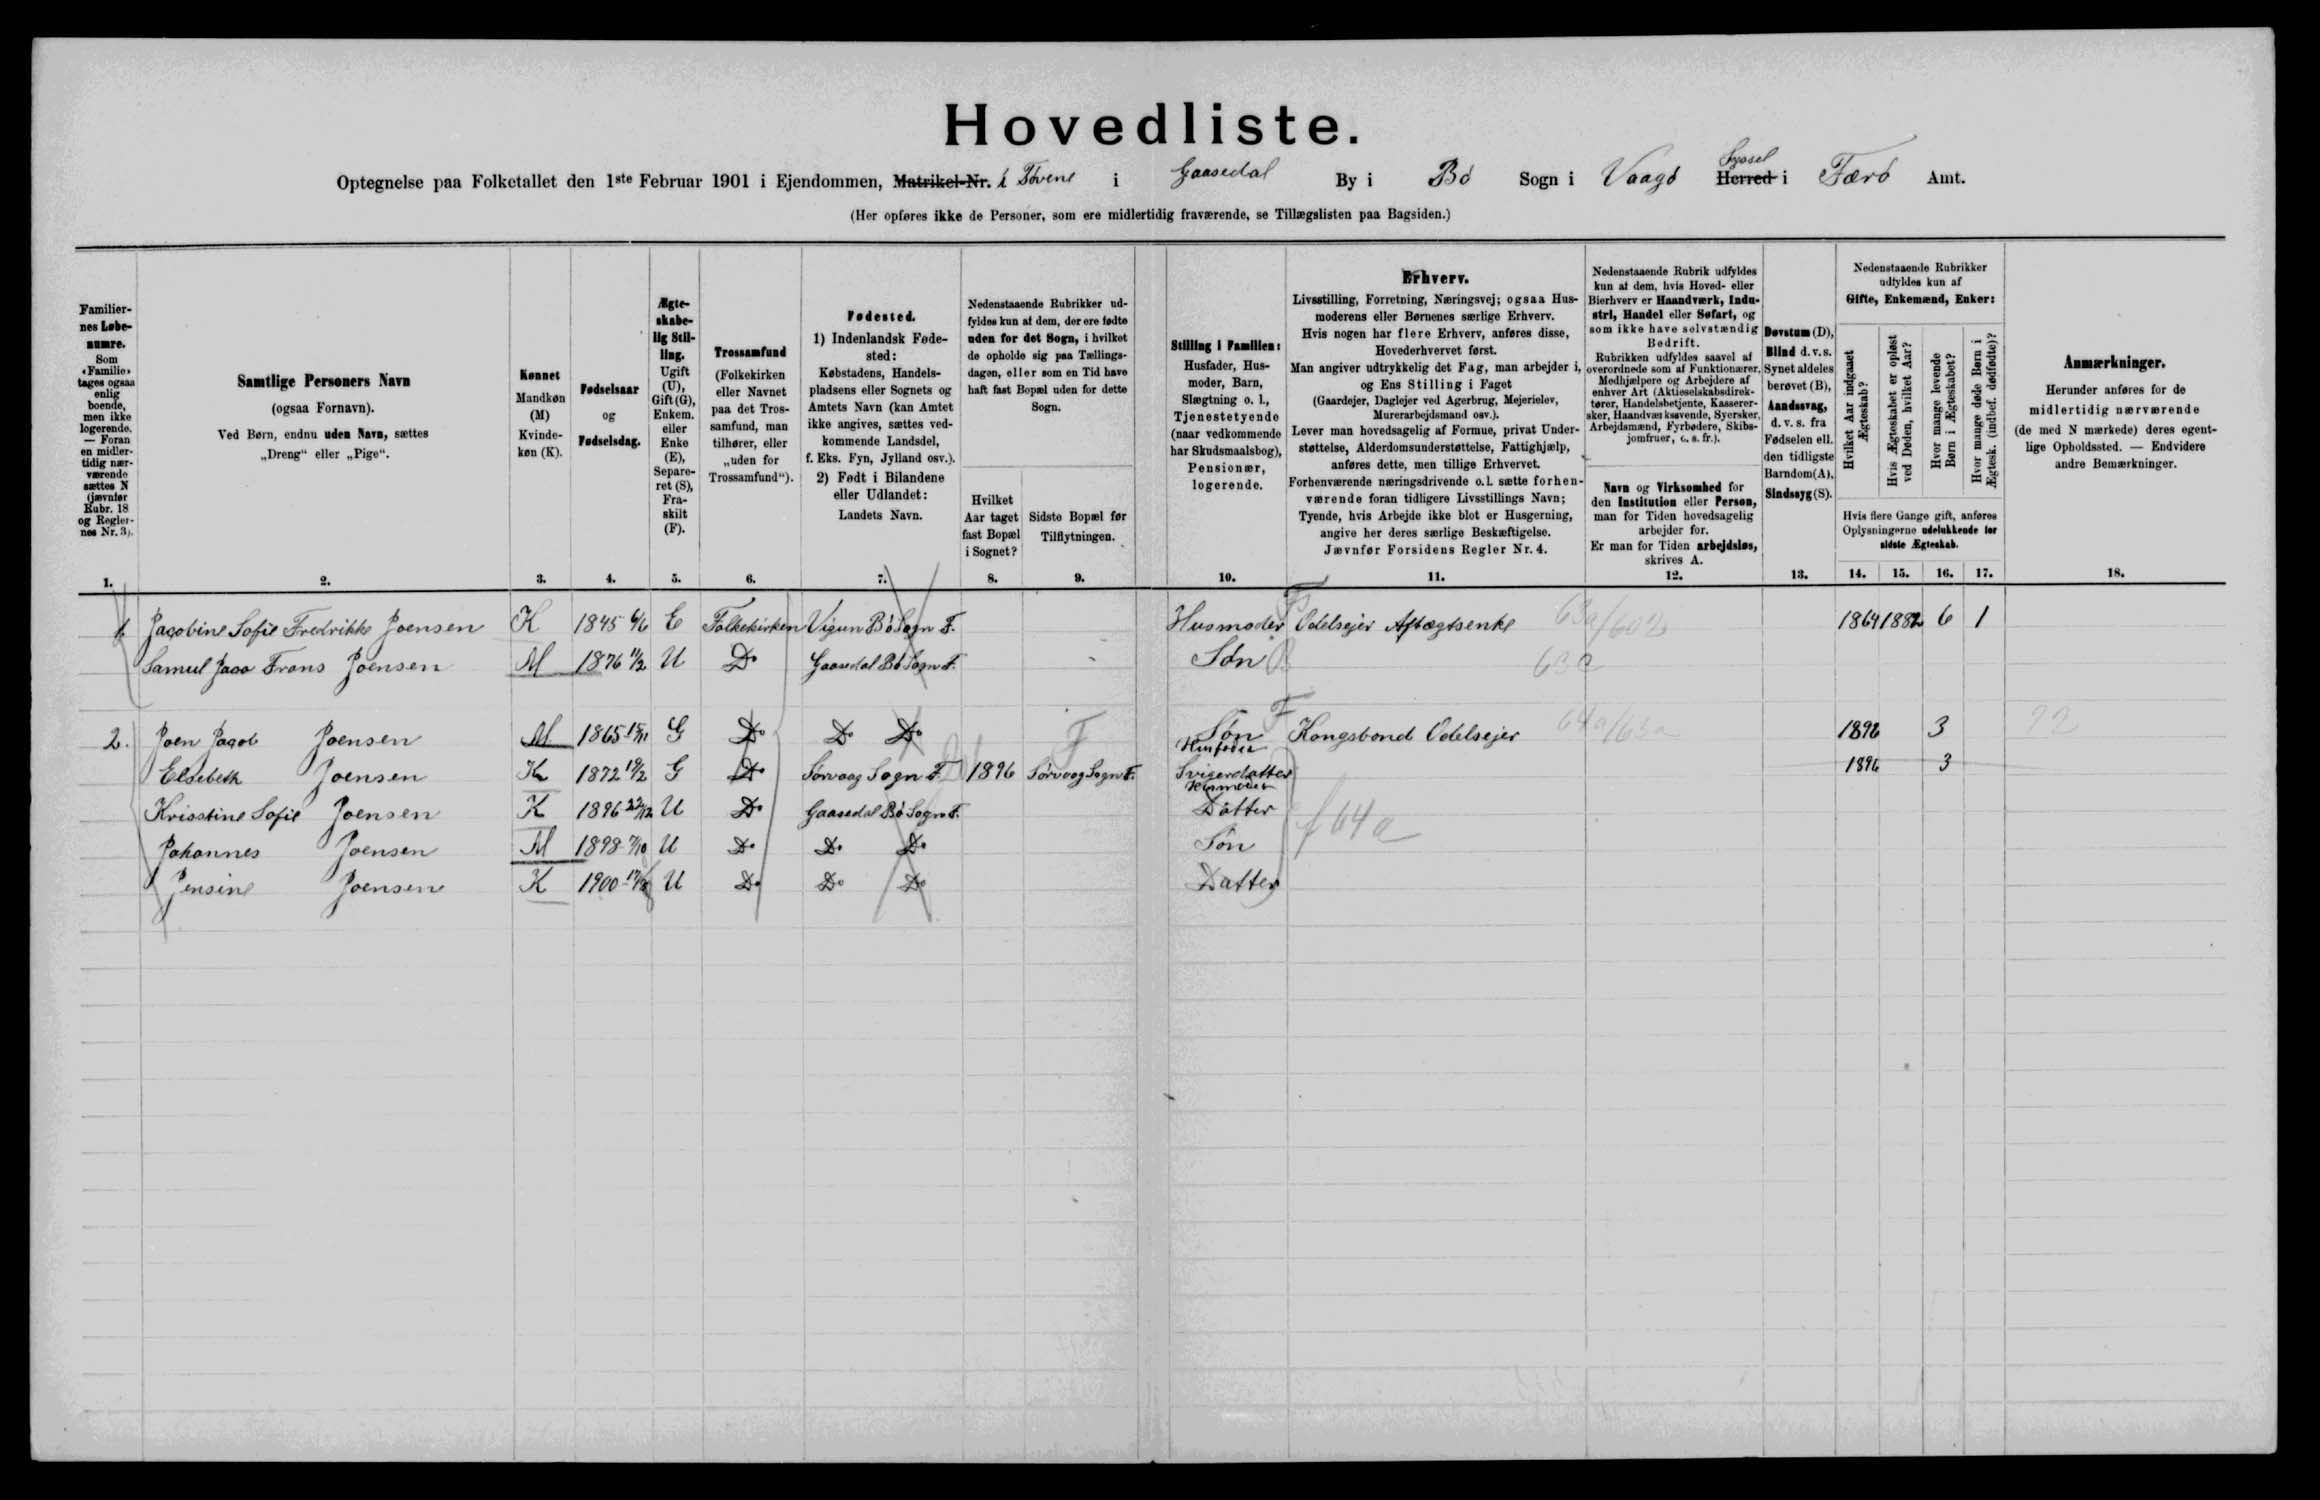 Hovedliste.
Optegnelse paa Folketallet den 1ste Februar 1901 i Ejendommen, Matrikel-Nr. i Tövene i Gaasedal By i Bö Sogn i Vaagö Herred Syssel i Færö Amt.
(Her opføres ikke de Personer, som ere midlertidig fraværende, se Tillægslisten paa Bagsiden.)
Familiernes Løbenumre. Som «Familie» tages ogsaa enlig boende, men ikke logerende. — Foran en midlertidig nærværende sættes N (jævnfør Rubr. 18 og Reglernes Nr. 3).
Samtlige Personers Navn (ogsaa Fornavn). Ved Børn, endnu uden Navn, sættes „Dreng“ eller „Pige“.
Kønnet Mandkøn (M) Kvindekøn (K).
Fødselsaar og Fødselsdag.
Ægteskabelig Stilling. Ugift (U), Gift (G), Enkem. eller Enke (E), Separeret (S), Fraskilt (F).
Trossamfund (Folkekirken eller Navnet paa det Trossamfund, man tilhører, eller „uden for Trossamfund“).
Fødested. 1) Indenlandsk Fødested: Købstadens, Handelspladsens eller Sognets og Amtets Navn (kan Amtet ikke angives, sættes vedkommende Landsdel, f. Eks. Fyn, Jylland osv.). 2) Født i Bilandene eller Udlandet: Landets Navn.
Nedenstaaende Rubrikker udfyldes kun af dem, der ere fødte uden for det Sogn, i hvilket de opholde sig paa Tællingsdagen, eller som en Tid have haft fast Bopæl uden for dette Sogn.
Hvilket Aar taget fast Bopæl i Sognet?
Sidste Bopæl før Tilflytningen.
Stilling i Familien: Husfader, Husmoder, Barn, Slægtning o. l., Tjenestetyende (naar vedkommende har Skudsmaalsbog), Pensionær, logerende.
Erhverv.
Livsstilling, Forretning, Næringsvej; ogsaa Husmoderens eller Børnenes særlige Erhverv.
Hvis nogen har flere Erhverv, anføres disse, Hovederhvervet først.
Man angiver udtrykkelig det Fag, man arbejder i, og Ens Stilling i Faget
(Gaardejer, Daglejer ved Agerbrug, Mejerielev, Murerarbejdsmand osv.).
Lever man hovedsagelig af Formue, privat Understøttelse, Alderdomsunderstøttelse, Fattighjælp, anføres dette, men tillige Erhvervet.
Forhenværende næringsdrivende o. l. sætte forhenværende foran tidligere Livsstillings Navn;
Tyende, hvis Arbejde ikke blot er Husgerning, angive her deres særlige Beskæftigelse.
Jævnfør Forsidens Regler Nr. 4.
Nedenstaaende Rubrik udfyldes kun af dem, hvis Hoved- eller Bierhverv er Haandværk, Industri, Handel eller Søfart, og som ikke have selvstændig Bedrift.
Rubrikken udfyldes saavel af overordnede som af Funktionærer, Medhjælpere og Arbejdere af enhver Art (Aktieselskabsdirektører, Handelsbetjente, Kasserersker, Haandværkssvende, Syersker, Arbejdsmænd, Fyrbødere, Skibsjomfruer, o. s. fr.).
Navn og Virksomhed for den Institution eller Person, man for Tiden hovedsagelig arbejder for.
Er man for Tiden arbejdsløs, skrives A.
Døvstum (D), Blind d. v. s. Synet aldeles berøvet (B), Aandssvag, d. v. s. fra Fødselen ell. den tidligste Barndom (A), Sindssyg (S).
Nedenstaaende Rubrikker udfyldes kun af Gifte, Enkemænd, Enker:
Hvilket Aar indgaaet Ægteskab?
Hvis Ægteskabet er opløst ved Døden, hvilket Aar?
Hvor mange levende Børn i Ægteskabet?
Hvor mange døde Børn i Ægtesk. (indbef. dødfødte)?
Hvis flere Gange gift, anføres Oplysningerne udelukkende for sidste Ægteskab.
Anmærkninger. Herunder anføres for de midlertidig nærværende (de med N mærkede) deres egentlige Opholdssted. — Endvidere andre Bemærkninger.
1. 2. 3. 4. 5. 6. 7. 8. 9. 10. 11. 12. 13. 14. 15. 16. 17. 18.
1 Jacobine Sofie Fredrikke Joensen K 1845 6/6 E Folkekirken Vigun Bö Sogn F. Husmoder Odelsejer Aftægtsenke 63a/602 1864 1882 6 1
Samuel Jaco Frans Joensen M 1876 11/2 U Do Gaasedal Bö Sogn F. Sön 63c
2. Joen Jacob Joensen M 1865 15/11 G Do Do Do Sön Husfader Kongsbond Odelsejer 64a/63a 1896 3 22
Elsebeth Joensen K 1872 19/2 G Do Sörvaag Sogn F. 1896 Sörvaag Sogn F. Svigerdatter Husmoder 1896 3
Krisstine Sofie Joensen K 1896 22/12 U Do Gaasedal Bö Sogn F. Datter
f 64a
Johannes Joensen M 1898 7/10 U Do Do Do Sön
Jensine Joensen K 1900 U Do Do Do Datter